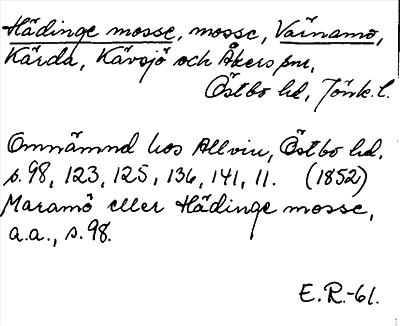 Hädinge mosse, mosse, Värnamo,
Kärda, Kävsjö och Åkers snr,
Östbo hd, Jönk.l.
Omnämnd hos Allvin, Östbo hd,
s.98, 123, 125, 136, 141, 11. (1852)
Maramö eller Hädinge mosse,
a.a., s.98.
E.R.-61.